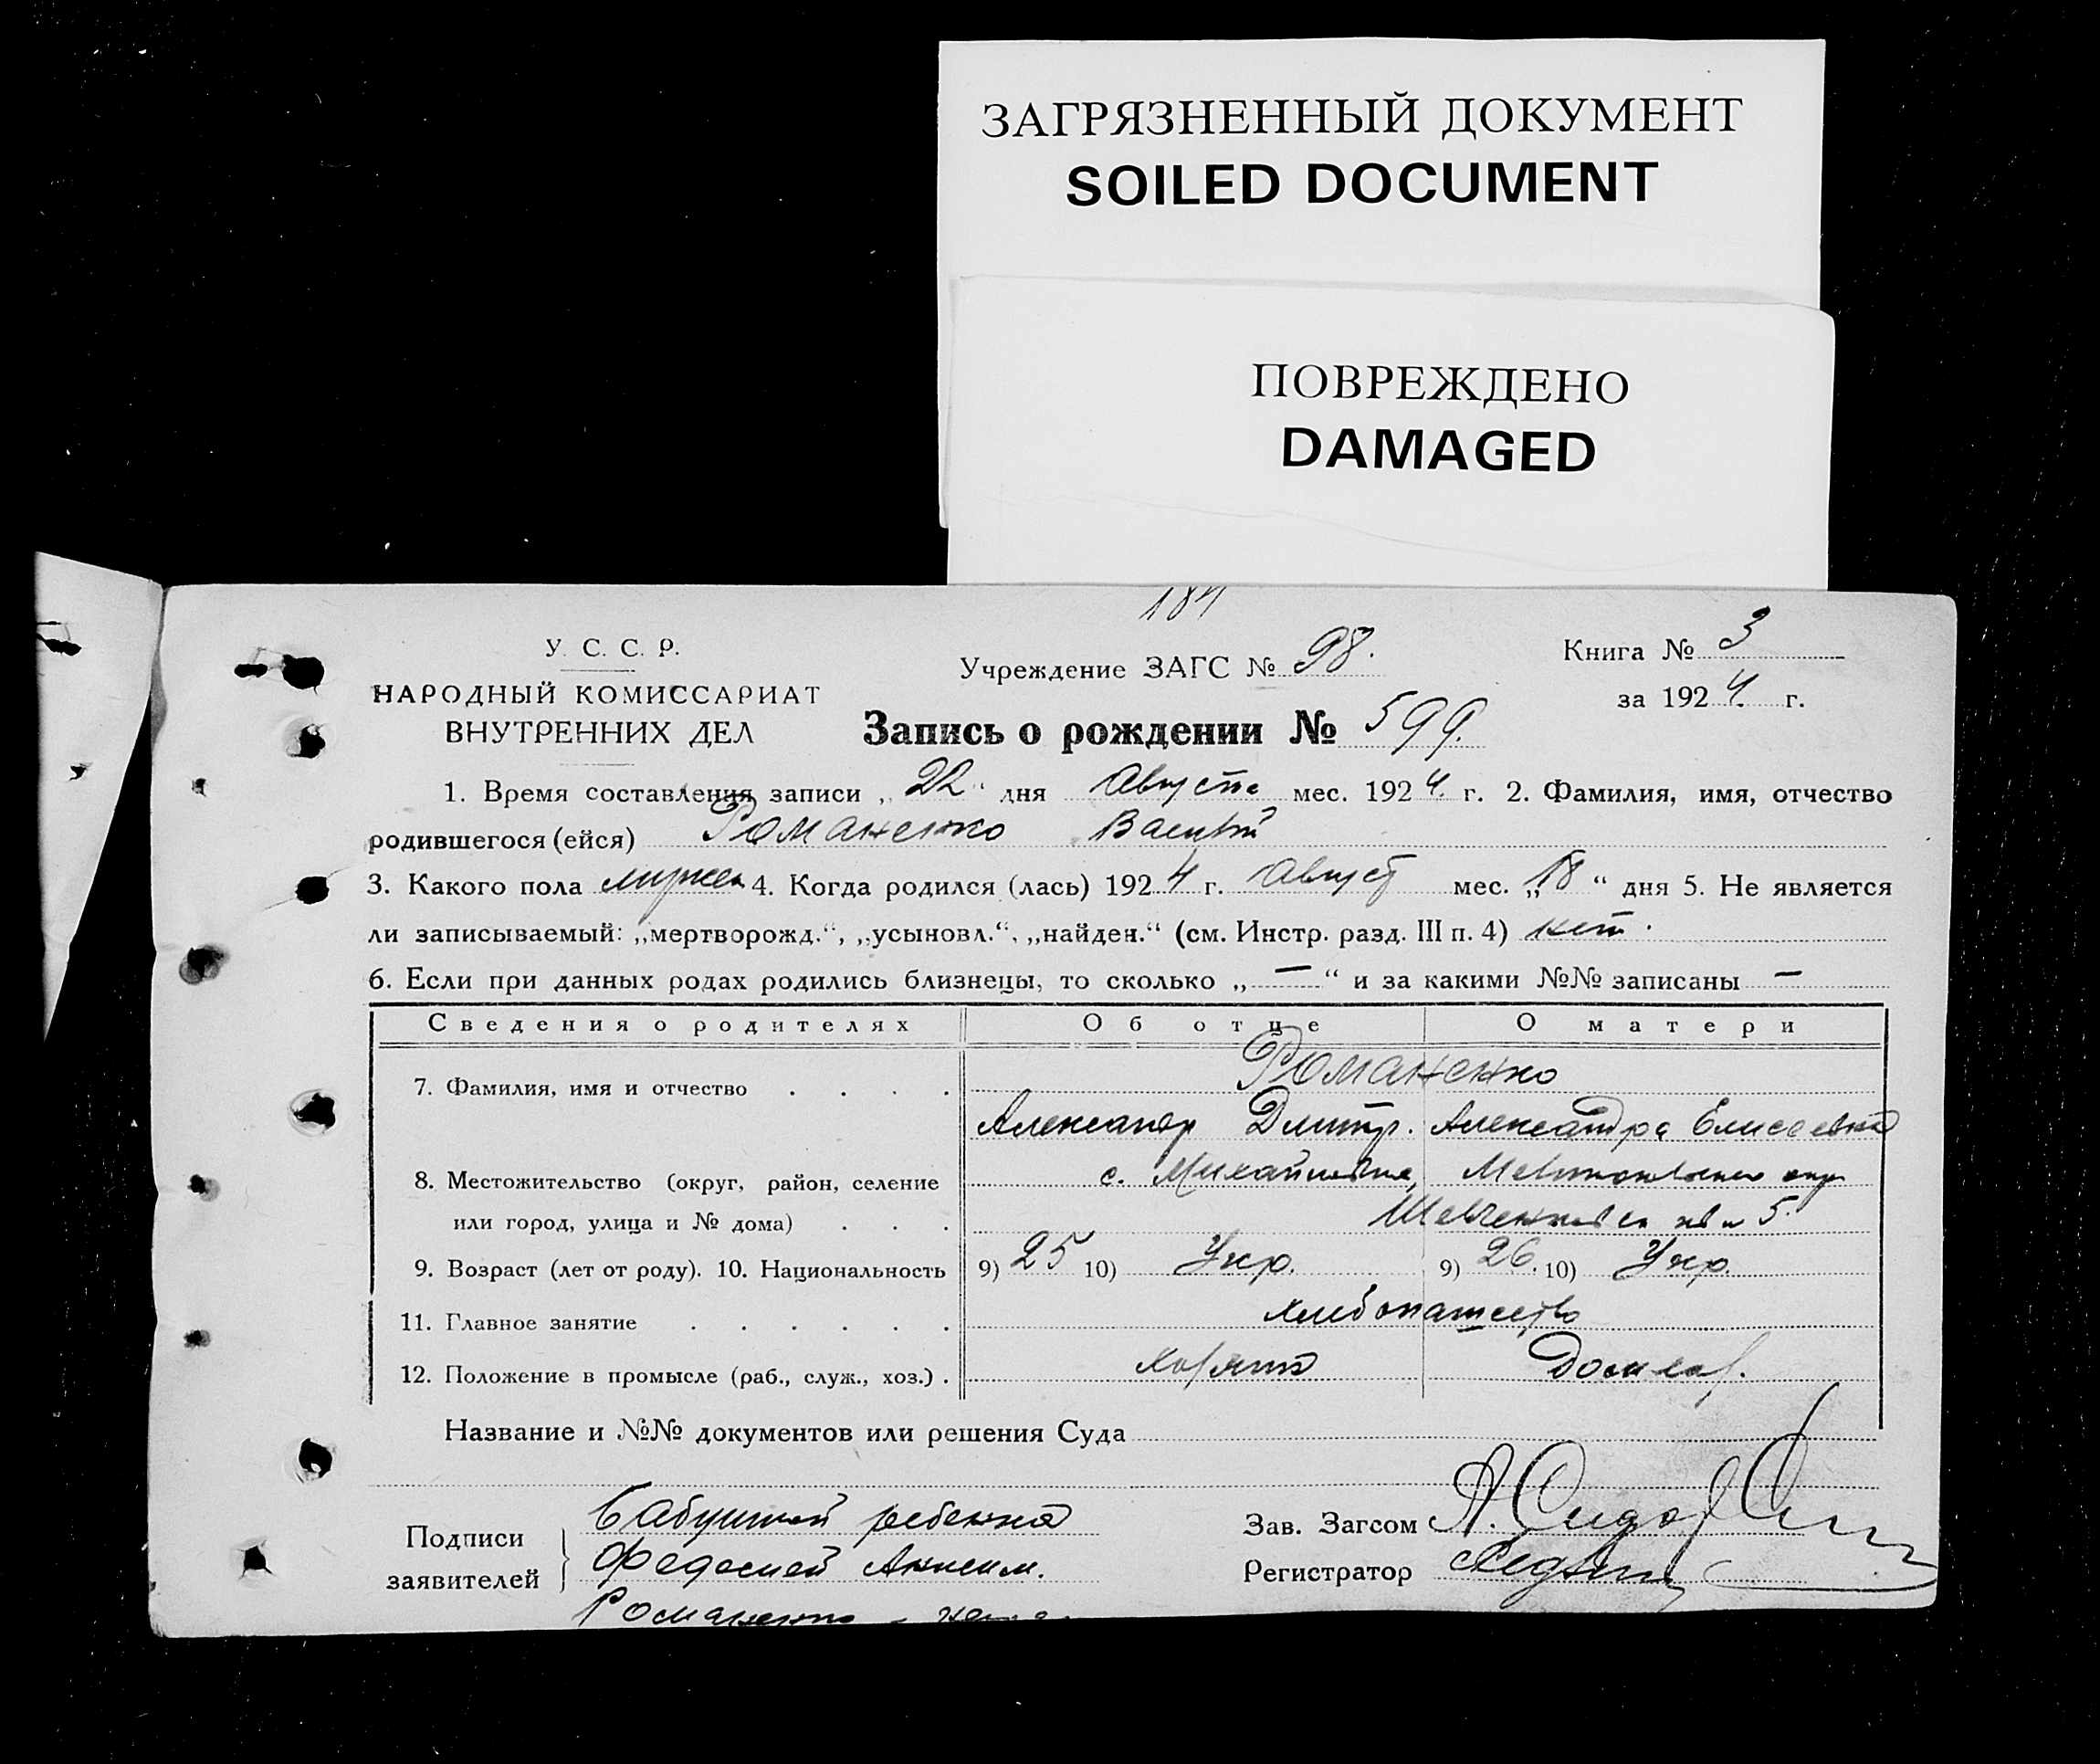 ЗАГРЯЗНЕННЫЙ ДОКУМЕНТ
SOILED DOCUMENT
ПОВРЕЖДЕНО
DAMAGED
184
У. С. С. Р.
НАРОДНЫЙ КОМИССАРИАТ
ВНУТРЕННИХ ДЕЛ
Учреждение ЗАГС № 98.
Книга № 3
за 1924 г.
Запись о рождении № 599.
1. Время составления записи „22“ дня Августа мес. 1924 г. 2. Фамилия, имя, отчество
родившегося (ейся) Романенко Василий
3. Какого пола мужск 4. Когда родился (лась) 1924 г. Август мес. „18“ дня 5. Не является
ли записываемый: „мертворожд.“, „усыновл.“, „найден.“ (см. Инстр. разд. III п. 4) нет.
6. Если при данных родах родились близнецы, то сколько „—“ и за какими №№ записаны —
Сведения о родителях Об отце О матери
7. Фамилия, имя и отчество . . . . Романенко
Александр Дмитр. Александра Елисеевна
8. Местожительство (округ, район, селение с. Михайловка, Мелитопольского окр
или город, улица и № дома) . . . 5.
9. Возраст (лет от роду). 10. Национальность 9) 25 10) Укр. 9) 26. 10) Укр.
11. Главное занятие . . . . . . хлебопашество
12. Положение в промысле (раб., служ., хоз.) . Хозяин Домхоз.
Название и №№ документов или решения Суда
Подписи заявителей
Бабушкой ребенка
Федосией Аким.
Романенко -
Зав. Загсом А.
Регистратор